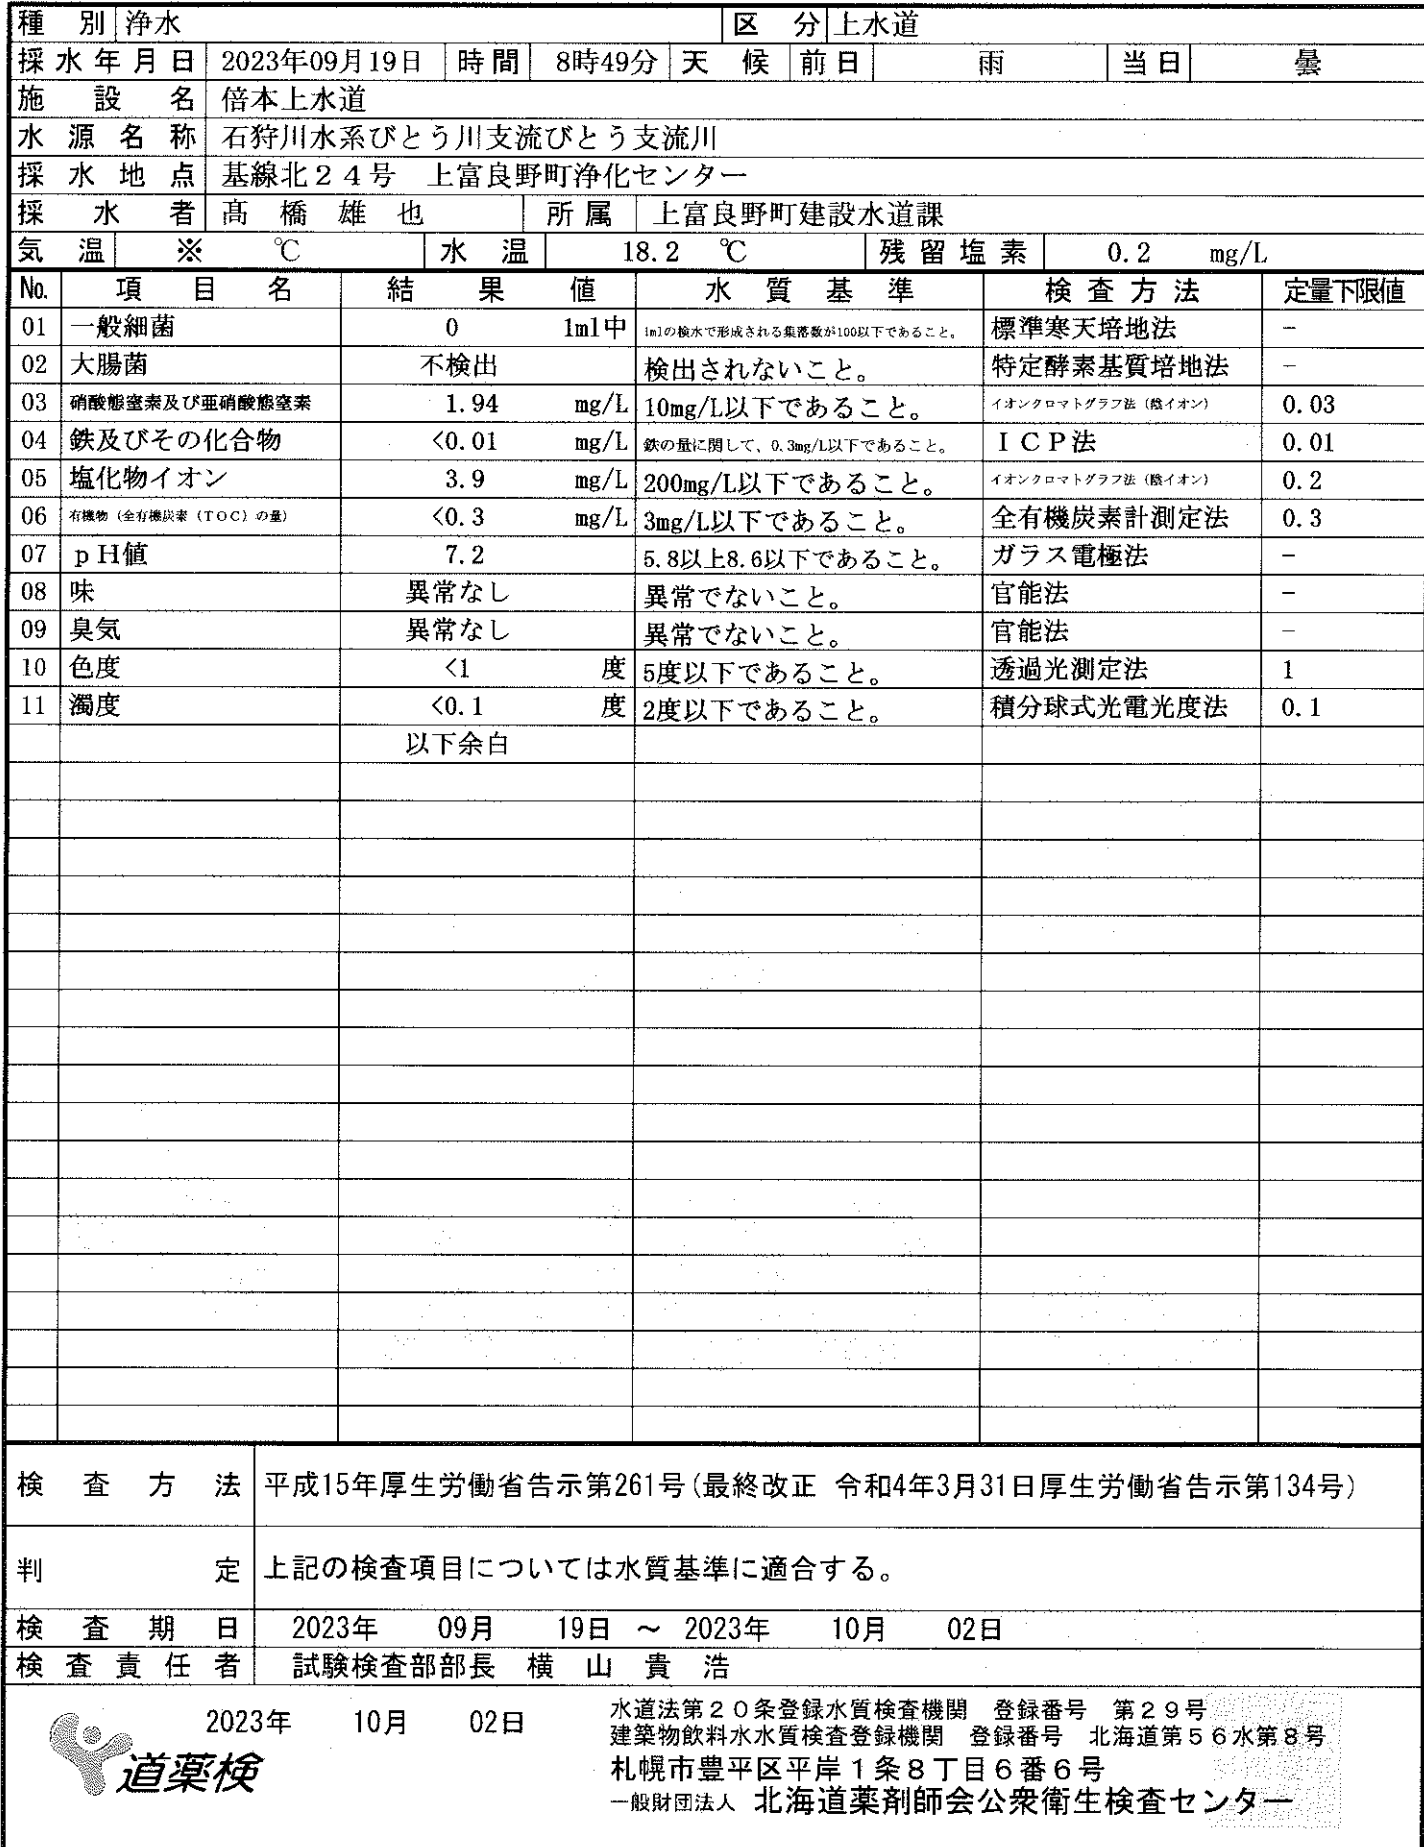 種別 浄水 区分 上水道
採水年月日 2023年09月19日 時間 8時49分 天候 前日 雨 当日 曇
施設名 倍本上水道
水源名称 石狩川水系びとう川支流びとう支流川
採水地点 基線北24号 上富良野町浄化センター
採水者 髙橋雄也 所属 上富良野町建設水道課
気温 ※ ℃ 水温 18.2 ℃ 残留塩素 0.2 mg/L
No. 項目名 結果値 水質基準 検査方法 定量下限値
01 一般細菌 0 1ml中 1mlの検水で形成される集落数が100以下であること。 標準寒天培地法 -
02 大腸菌 不検出 検出されないこと。 特定酵素基質培地法 -
03 硝酸態窒素及び亜硝酸態窒素 1.94 mg/L 10mg/L以下であること。 イオンクロマトグラフ法(陰イオン) 0.03
04 鉄及びその化合物 <0.01 mg/L 鉄の量に関して、0.3mg/L以下であること。 ICP法 0.01
05 塩化物イオン 3.9 mg/L 200mg/L以下であること。 イオンクロマトグラフ法(陰イオン) 0.2
06 有機物(全有機炭素(TOC)の量) <0.3 mg/L 3mg/L以下であること。 全有機炭素計測定法 0.3
07 pH値 7.2 5.8以上8.6以下であること。 ガラス電極法 -
08 味 異常なし 異常でないこと。 官能法 -
09 臭気 異常なし 異常でないこと。 官能法 -
10 色度 <1 度 5度以下であること。 透過光測定法 1
11 濁度 <0.1 度 2度以下であること。 積分球式光電光度法 0.1
以下余白
検査方法 平成15年厚生労働省告示第261号(最終改正 令和4年3月31日厚生労働省告示第134号)
判定 上記の検査項目については水質基準に適合する。
検査期日 2023年 09月 19日 ~ 2023年 10月 02日
検査責任者 試験検査部部長 横山貴浩
2023年 10月 02日
道薬検
水道法第20条登録水質検査機関 登録番号 第29号
建築物飲料水水質検査登録機関 登録番号 北海道第56水第8号
札幌市豊平区平岸1条8丁目6番6号
一般財団法人 北海道薬剤師会公衆衛生検査センター